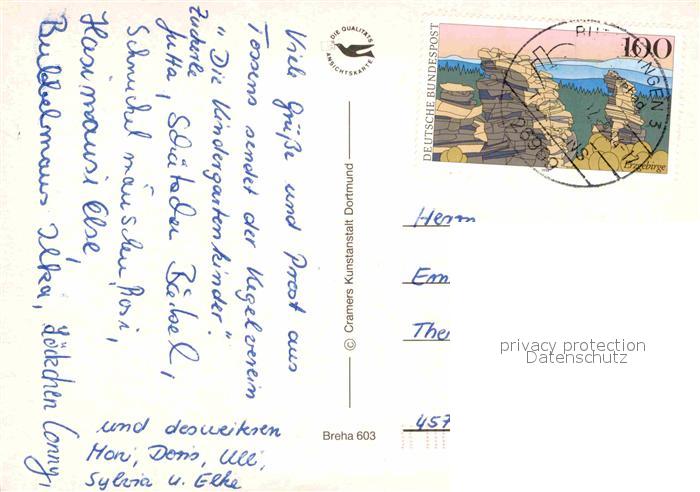 Viele Grüße und Prost aus
Tossens sendet der Kegelverein
"Die Kindergartenkinder".
Jutta, Bärbel,
Schnuckelmäuschen Rosi,
Hasimausi Else,
Buddelmaus Ilka, Löckchen Conny,
und desweiteren
Moni, Doris, Ulli,
Sylvia u. Elke
DIE QUALITÄTS
ANSICHTSKARTE
© Cramers Kunstanstalt Dortmund
Breha 603
DEUTSCHE BUNDESPOST
100
Erzgebirge
Herrn
Em
The
457
privacy protection
Datenschutz